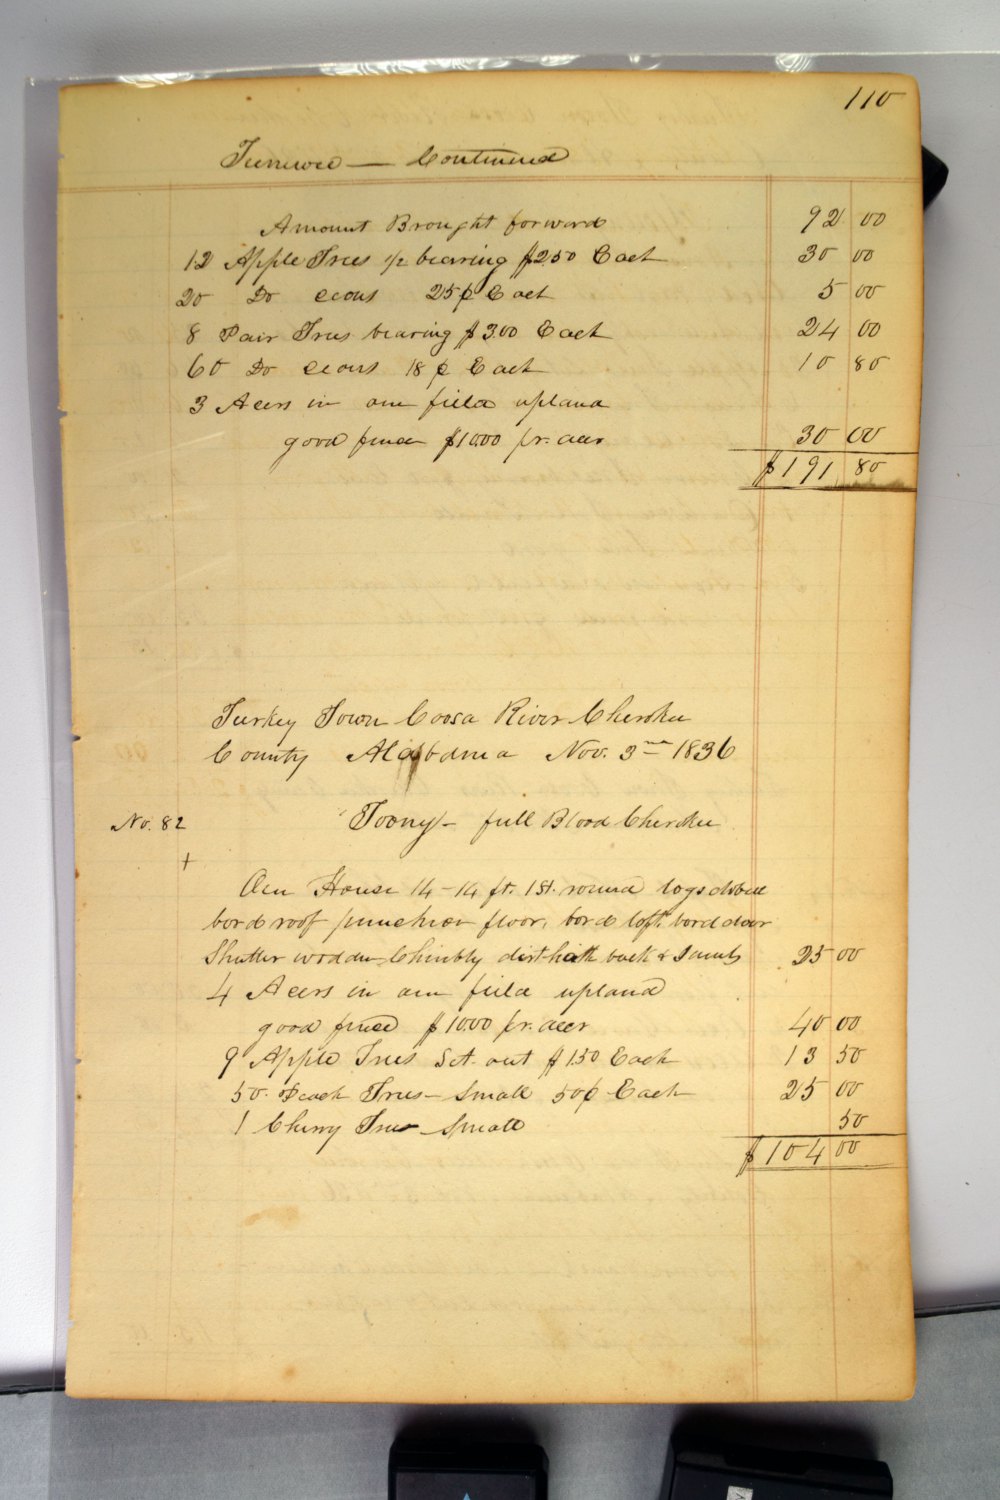 110
Continued
Amount Brought forward 92 00
12 Apple Trees 1/2 bearing $2.50 Each 30 00
20 Do scons 25¢ Each 5 00
8 Pair Trees bearing $3.00 Each 24 00
60 Do scons 18¢ Each 10 80
3 Acers in one field upland
good fence $10.00 pr. acer 30 00
$191 80
Turkey Town Coosa River Cherokee
County Alabama Nov. 3rd 1836
No. 82 Toony - full Blood Cherokee
+
One House 14-14 ft. 1 St. round logs
bord roof puncheon floor, bord loft bord door
Shutter wodden Chimbly dirt hath back & Jambs 25 00
4 Acers in one field upland
good fence $10.00 pr. acer 40 00
9 Apple Trees Set out $1.50 Each 13 50
50 Peach Trees - Small 50¢ Each 25 00
1 Cherry Tree Small 50
$104 00